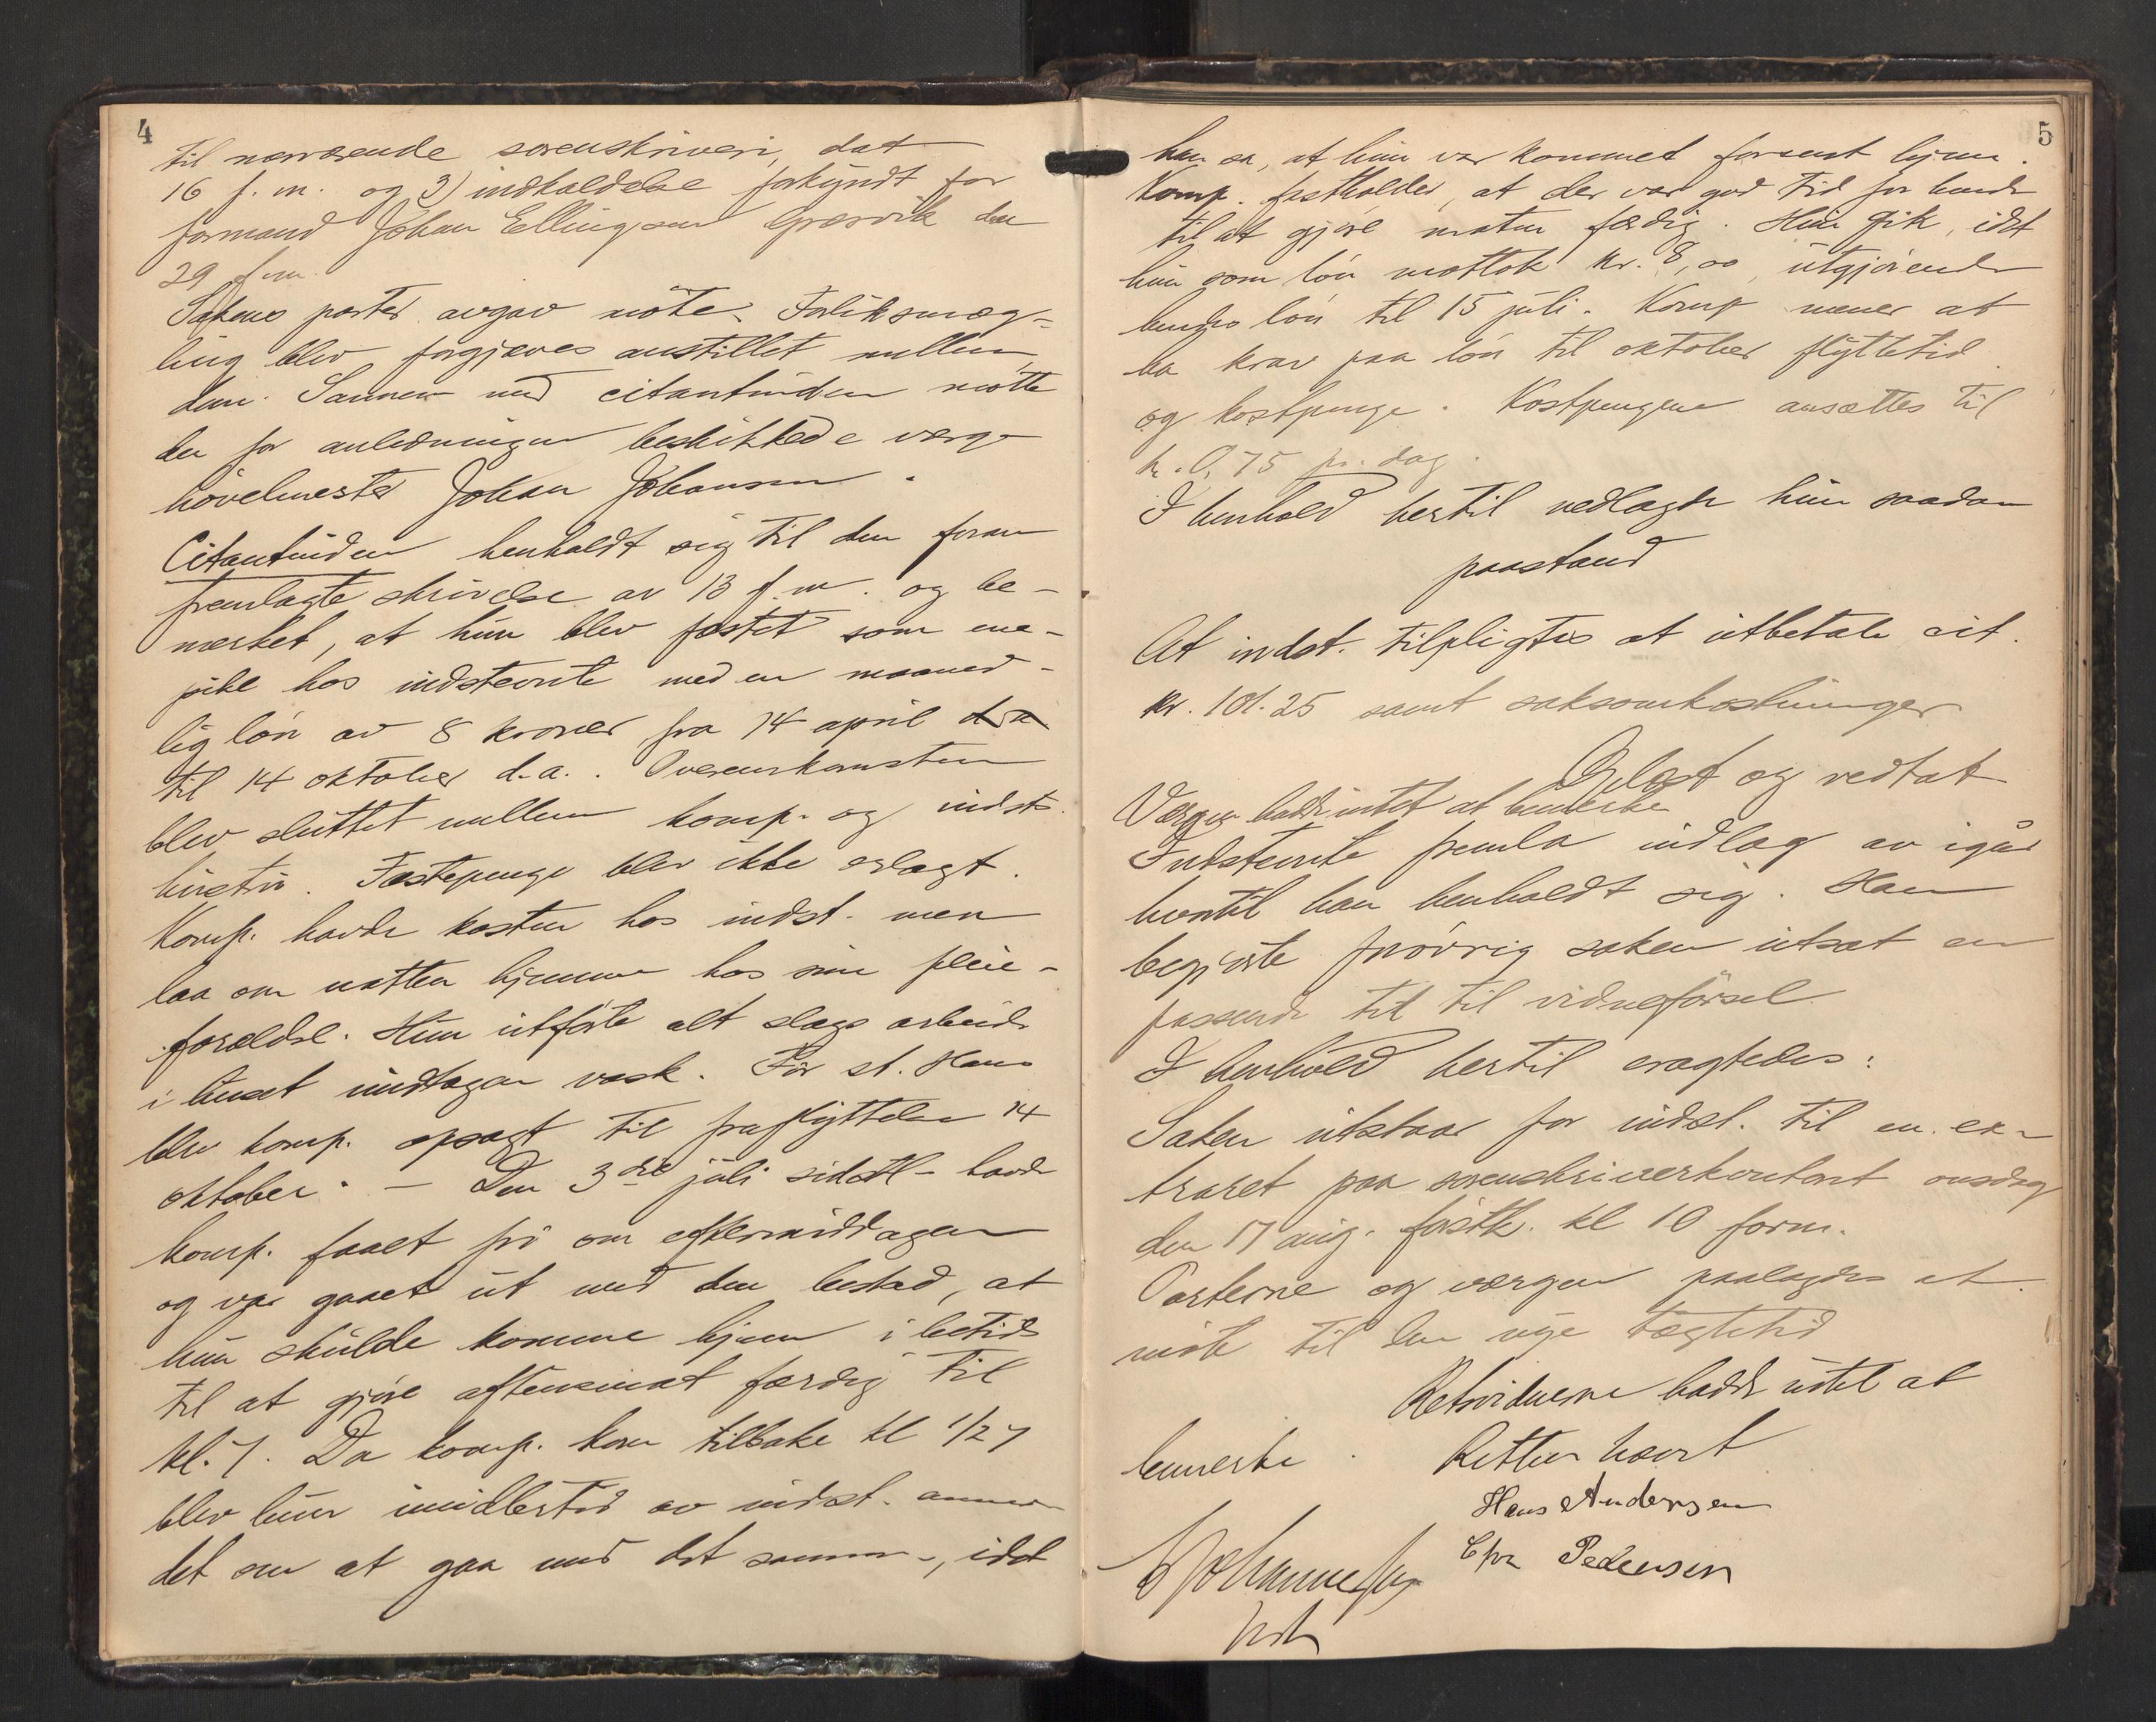 4
til nærværende sorenskriveri, dat
16 f. m. og 3) indkaldelse forkyndt for
formand Johan Ellingsen Græsvik den
29 f.m.
Sakens parter avgav møte. Forliksmæg-
ling blev forgjæves anstillet mellem
dem. Sammen med citantinden møtte
den for anledningen beskikkede værge
høvelmester Johan Johansen.
Citantinden henholdt sig til den foran
fremlagte skrivelse av 13 f.m. og be-
merket, at hun blev fæstet som ene-
pike hos indstevnte med en maaned-
lig løn av 8 kroner fra 14 april d.a
til 14 oktober d.a. Overenskomsten
blev sluttet mellem komp. og indst.
hustru. Fæstepenge blev ikke erlagt.
Komp. havde kosten hos indst. men
laa om natten hjemme hos sine pleie-
forældre. Hun utførte alt slags arbeide
i huset undtagen vask. Før st. Hans
blev komp. opsagt til fraflyttelse 14
oktober. — Den 3die juli sidstl. havde
komp. faaet fri om eftermiddagen
og var gaaet ut med den besked, at
hun skulde komme hjem i betids
til at gjøre aftensmat færdig til
kl. 7. Da komp. kom tilbake kl 1/2 7
blev hun imidlertid av indst. anmo-
det om at gaa med det samme, idet
5
han sa, at hun var kommet forsent hjem.
Komp. fastholder, at der var god tid for hende
til at gjøre maten færdig. Hun gik, idet
hun som løn mottok kr. 8,00, utgjørende
hendes løn til 15 juli. Komp mener at
ha krav paa løn til oktober flyttetid
og kostpenge. Kostpengene ansættes til
kr. 0,75 pr. dag.
I henhold hertil nedlagde hun saadan
paastand
At indst. tilpligtes at utbetale cit.
kr. 101.25 samt saksomkostninger
Oplæst og vedtat
Værgen hadde intet at bemerke
Indstevnte fremla indlæg av igår
hvortil han henholdt sig. Han
begjærte forøvrig saken utsat en
passende tid til vidneførsel.
I henhold hertil eragtedes:
Saken utstaar for indst. til en ex-
traret paa sorenskriverkontoret onsdag
den 17 aug. førstk. kl 10 form.
Parterne og værgen paalagdes at
møte til den nye tægtetid
Retsvidnerne hadde intet at
bemerke. Retten hævet
Hans Andersen
Chr Pedersen